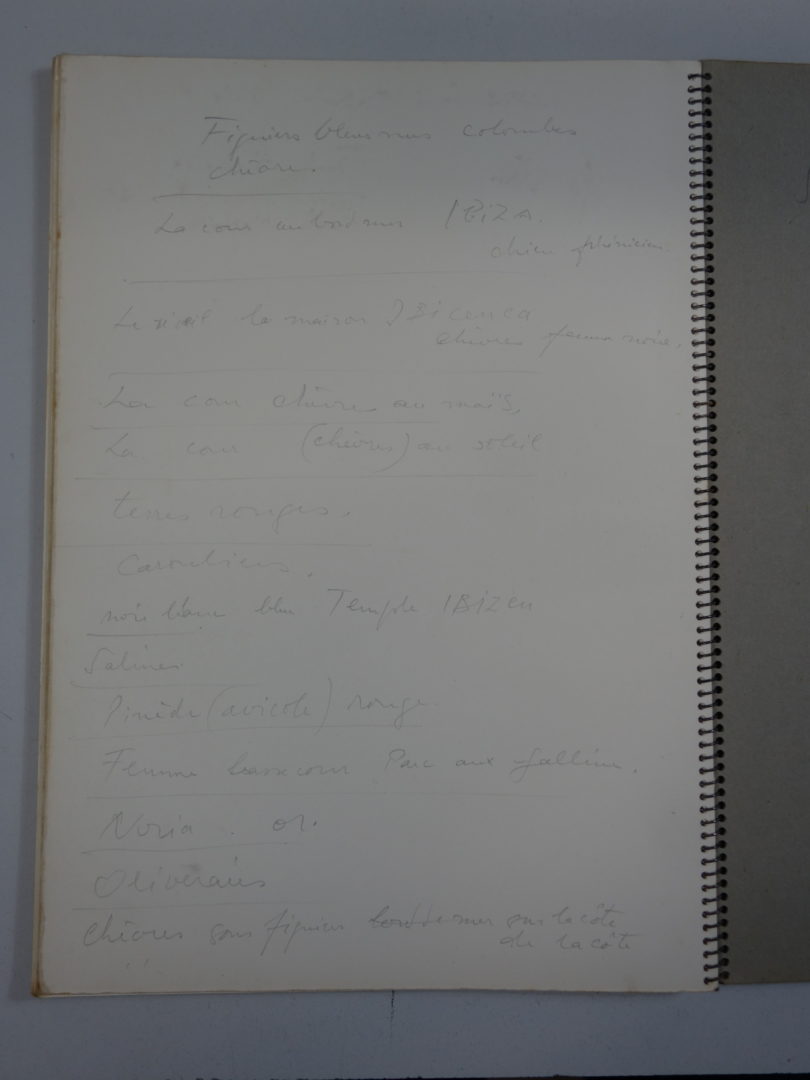 Figuiers bleus nus colombes
chèvre.
La cour au bord mer IBIZA.
chien phénicien.
Le soleil la maison IBicenca
chèvres femme noire.
La cour chèvres au maïs,
La cour (chèvres) au soleil
terres rouges.
Caroubiers.
noir blanc bleu Temple IBIZen
Salines
Pinède (avicole) rouge
Femme basse cour Parc aux gallines.
Noria. or.
Oliveraies
chèvres sous figuiers bord de mer sur la côte
de la côte